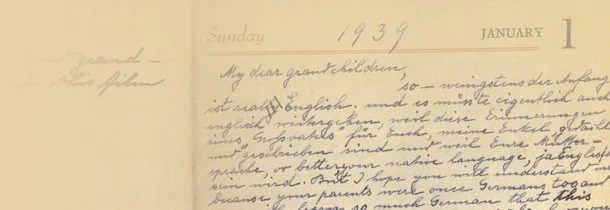 grand-
this film
Sunday 1939 JANUARY 1
My dear grandchildren,
so – wenigstens der Anfang
ist really English. und es müsste eigentlich auch
englisch weitergehen, weil diese Erinnerungen
eines Großvaters" für Euch, meine Enkel, gedacht
und geschrieben sind und weil Eure Mutter-
sprache, or better your native language, ja English
sein wird. But I hope you will understand
because your parents were once Germans too and
learn so much German that this